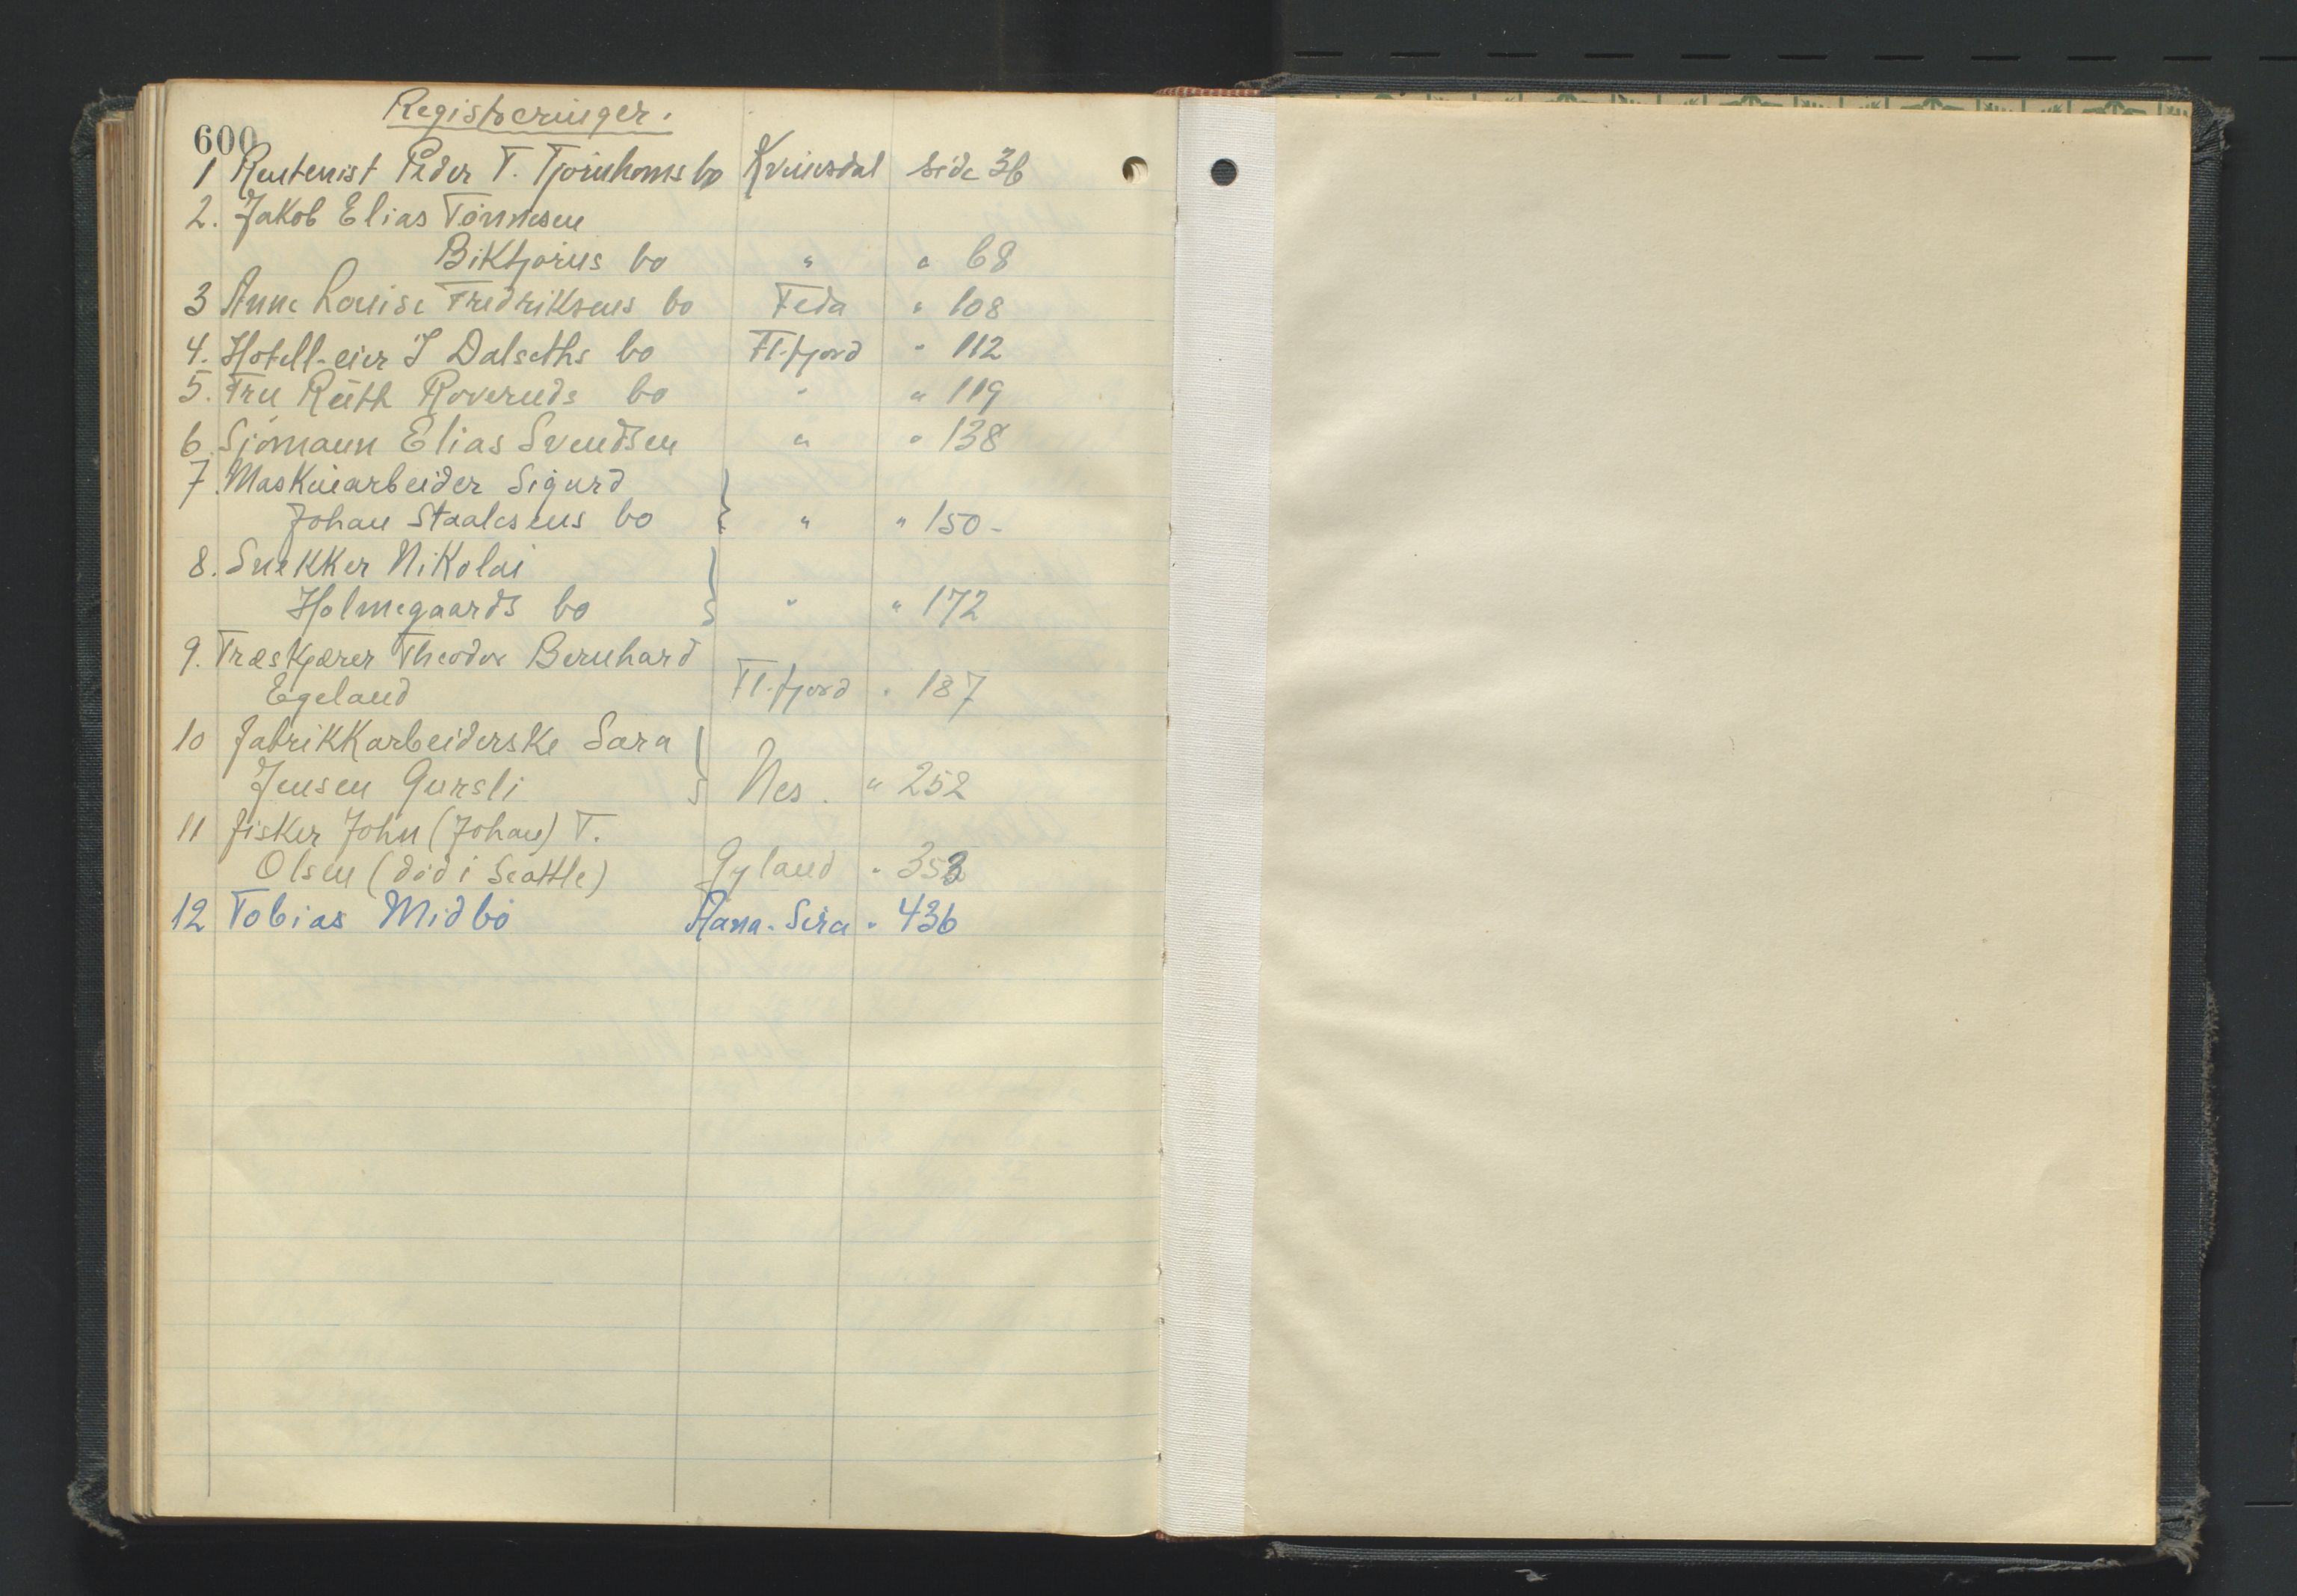 Registreringer.
600
1 Rentenist Peder T. Tjørnhoms bo Kvinesdal side 36
2. Jakob Elias Tønnesen
Biktjørns bo " " 68
3 Anne Louise Fredriksens bo Feda " 108
4. Hotell-eier J Dalseths bo Fl.fjord " 112
5. Fru Ruth Roveruds bo " " 119
6. Sjømann Elias Svendsen " " 138
7. Maskinarbeider Sigurd
Johan Staalesens bo } " " 150-
8. Snekker Nikolai
Holmegaards bo } " " 172
9. Træskjærer Theodor Bernhard
Egeland Fl.fjord " 187
10 Fabrikkarbeiderske Sara
Jensen Gursli } Nes. " 252
11 Fisker John (Johan) T.
Olsen (død i Seattle) Gyland " 353
12 Tobias Midbø Åana-Sira " 436